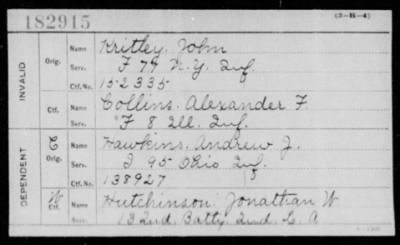 182915
(3-H-4)
INVALID
Orig. Name Kritley, John
Serv. F 79 N.Y. Inf.
Ctf. No. 152335
Ctf. Name Collins, Alexander F.
Serv. F 8 Ill. Inf.
DEPENDENT
Orig. Name Hawkins, Andrew J.
Serv. I 95 Ohio Inf.
Ctf. No. 138927
Ctf. Name Hutchinson, Jonathan W
Serv. 132nd. Batty. 2nd. L. A